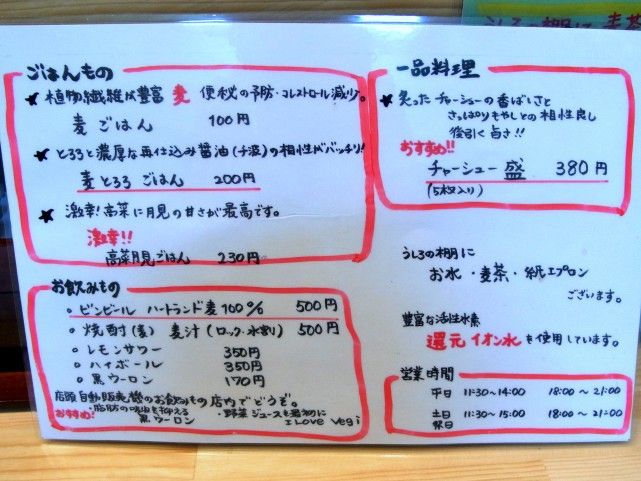 うしろの棚に 麦茶
ごはんもの
★ 植物繊維が豊富 麦 便秘の予防・コレストロール減少。
麦ごはん 100円
★ とろろと濃厚な再仕込み醤油(千波)の相性がバッチリ!
麦とろろごはん 200円
★ 激辛!高菜に月見の甘さが最高です。
激辛!!
高菜月見ごはん 230円
お飲みもの
・ビンビール ハートランド麦100% 500円
・焼酎(麦) 麦汁(ロック・水割り) 500円
・レモンサワー 350円
・ハイボール 350円
・黒ウーロン 170円
店頭自動販売機のお飲みもの店内でどうぞ。
おすすめ!・脂肪の吸収を抑える 黒ウーロン
・野菜ジュースも最初に I Love Vegi
一品料理
★ 炙ったチャーシューの香ばしさと
さっぱりもやしとの相性良し
後引く旨さ!!
おすすめ!!
チャーシュー盛 380円
(5枚入り)
うしろの棚に
お水・麦茶・紙エプロン
ございます。
豊富な活性水素
還元イオン水を使用しています。
営業時間
平日 11:30〜14:00 18:00〜21:00
土日祝日 11:30〜15:00 18:00〜21:00